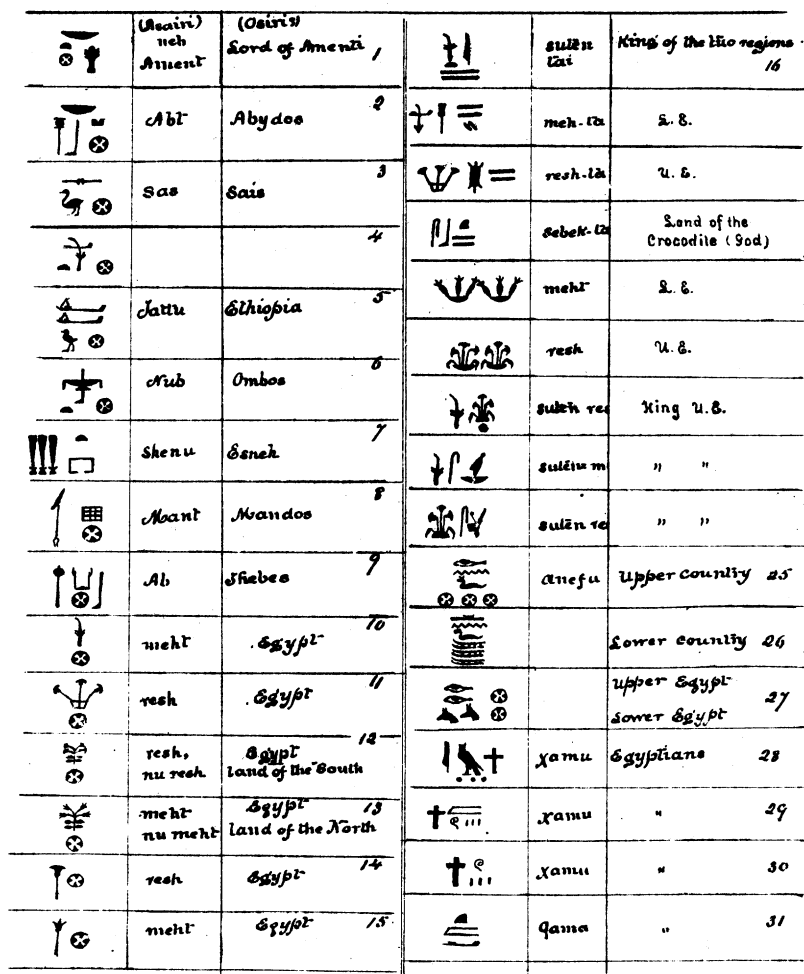 (Asairi) (Osiris)
neb Lord of Amenti
Ament 1
Abt Abydos 2
Sas Sais 3
4
Tattu Ethiopia 5
Nub Ombos 6
Shenu Esneh 7
Mant Mandos 8
Ab Thebes 9
meht Egypt 10
resh Egypt 11
resh, Egypt 12
nu resh land of the South
meht Egypt 13
nu meht land of the North
resh Egypt 14
meht Egypt 15
sutēn King of the two regions
tai 16
meh-ta L. E.
resh-ta U. E.
sebek-ta Land of the
Crocodile (God)
meht L. E.
resh U. E.
sutēn res King U. E.
sutēn m " "
sutēn re " "
anefu Upper Country 25
Lower Country 26
Upper Egypt
27
Lower Egypt
xamu Egyptians 28
xamu " 29
xamu " 30
qama " 31